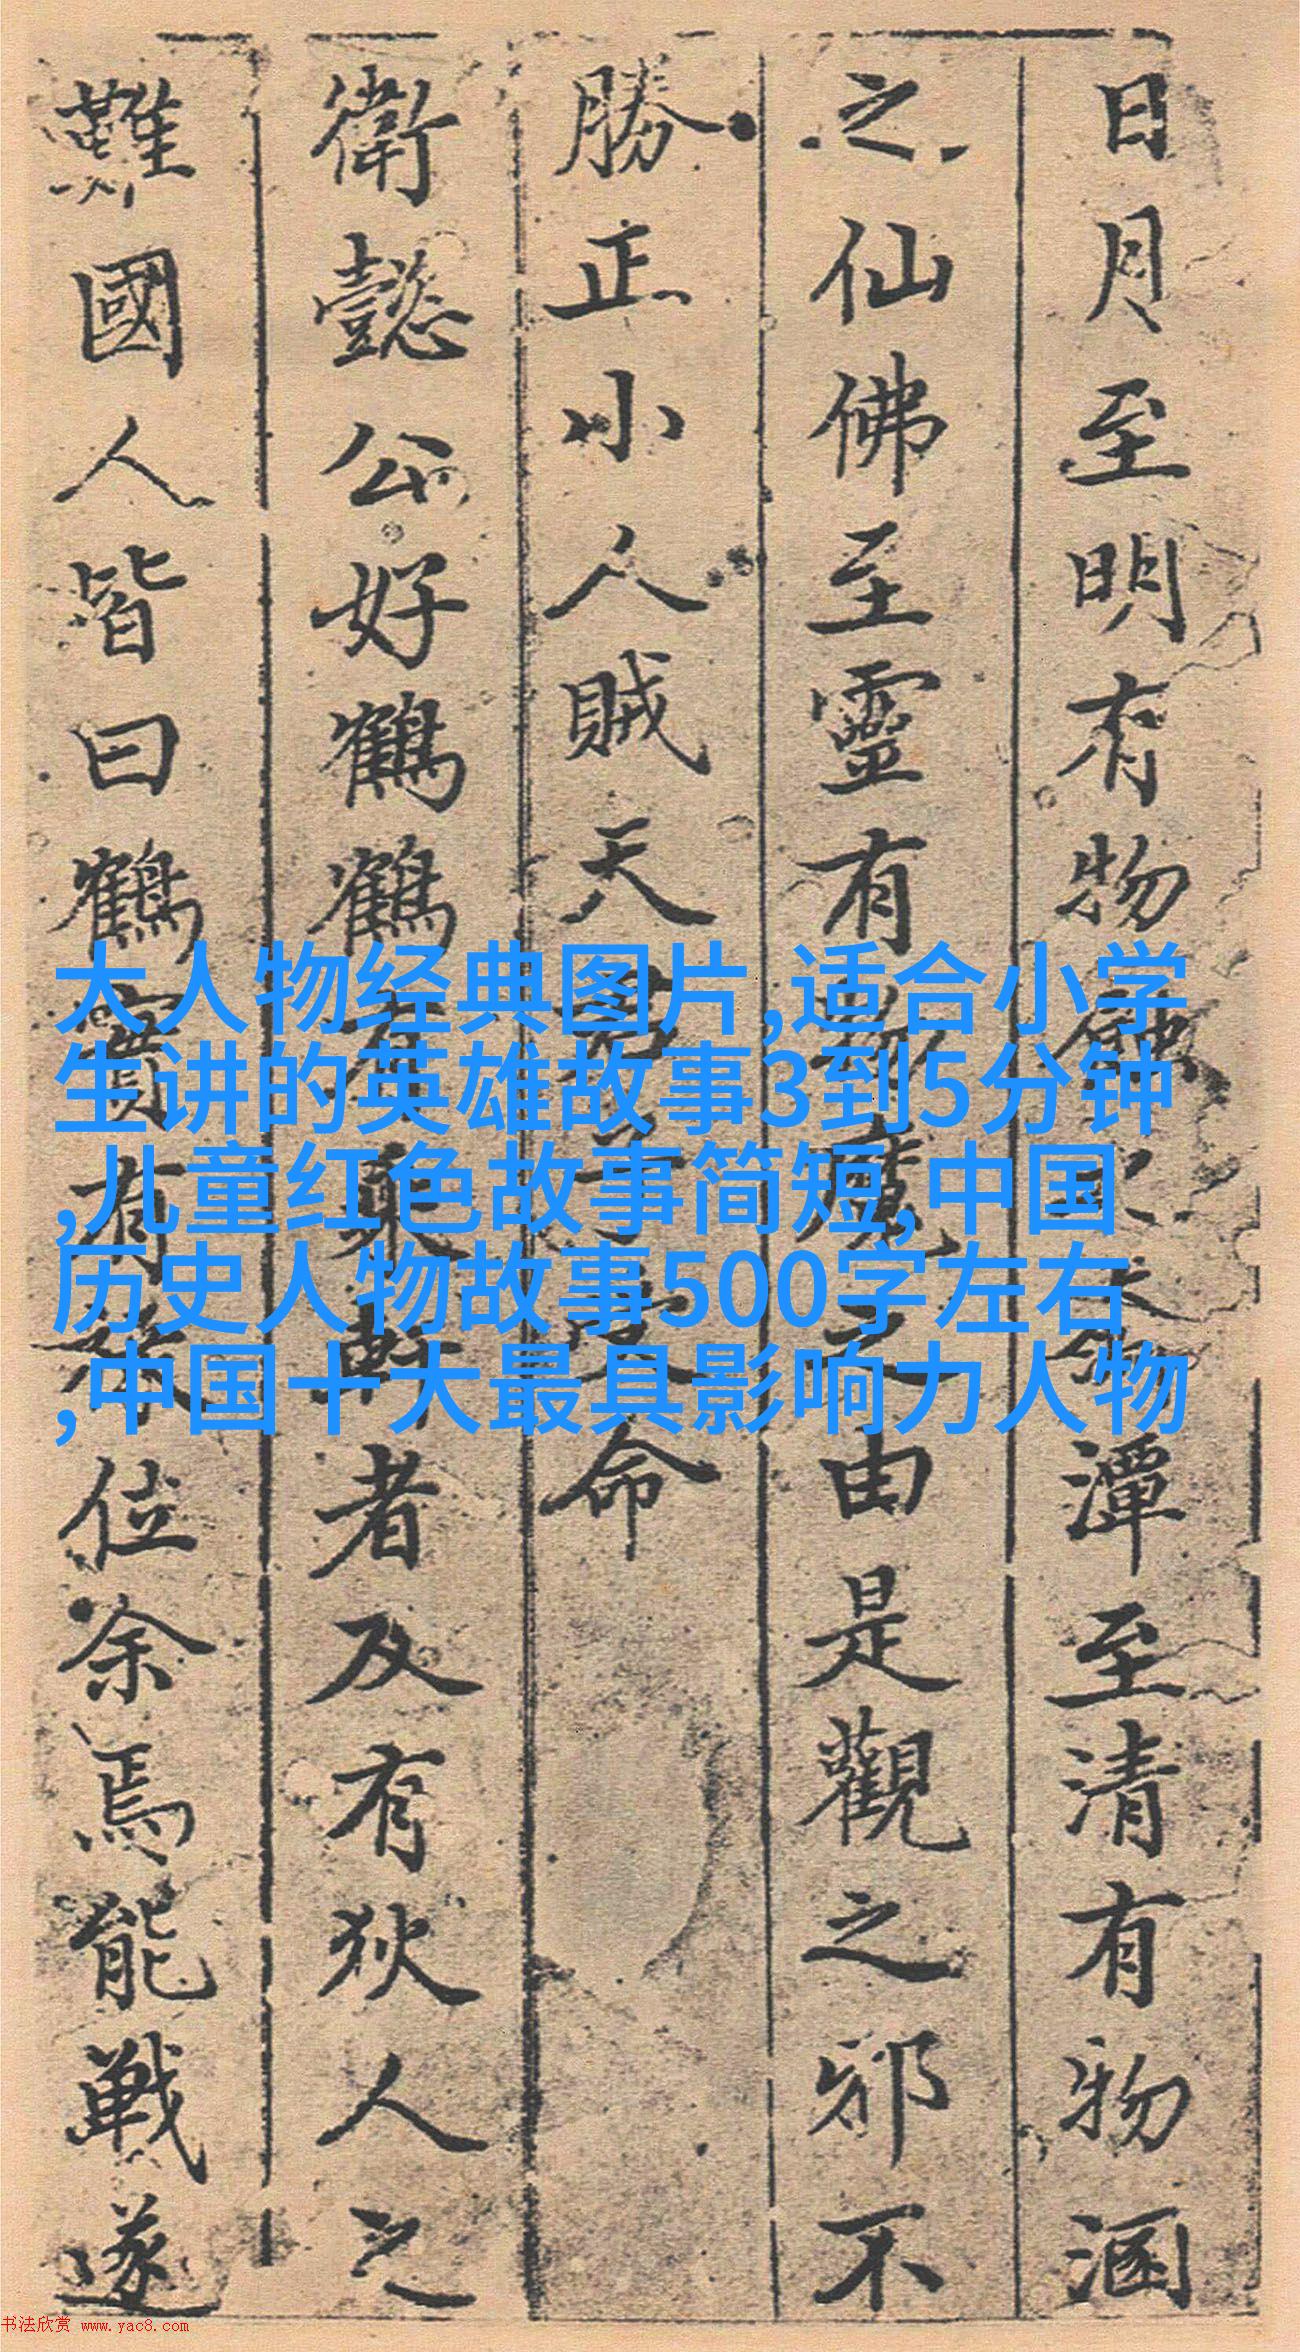 日月至明有物蝕之潭至清有物涵
之仙佛至靈有魔之由是觀之邪不
勝正小人賊天君子命
衛懿公好鶴鶴有乘軒者及有狄人之
難國人皆曰鶴實有祿位余焉能戰遂
大人物经典图片,适合小学
生讲的英雄故事3到5分钟
,儿童红色故事简短,中国
历史人物故事500字左右
,中国十大最具影响力人物
书法欣赏 www.yac8.com